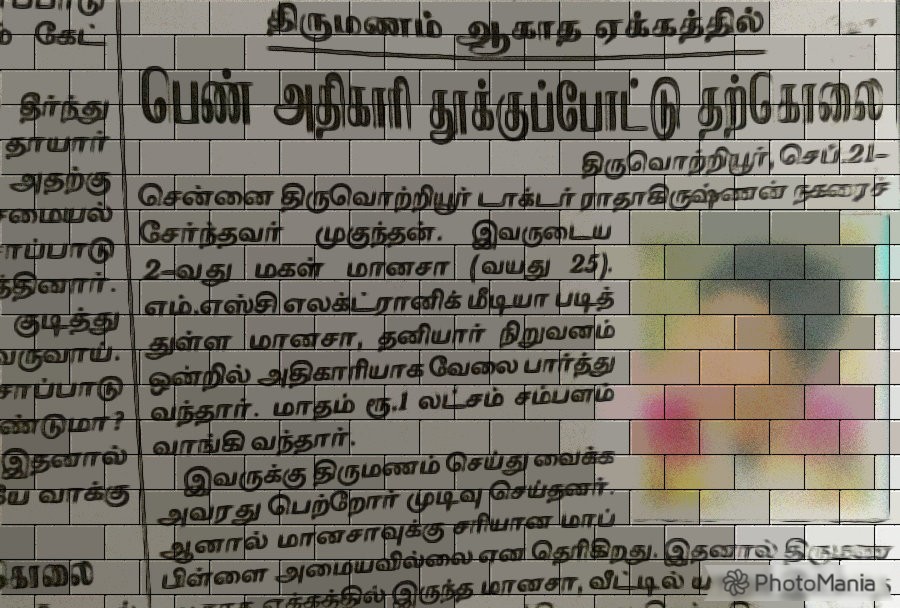 கேட்
தீர்ந்து
தாயார்
அதற்கு
சமையல்
சாப்பாடு
குடித்து
வருவாய்.
சாப்பாடு
இதனால்
வாக்கு
திருமணம் ஆகாத ஏக்கத்தில்
பெண் அதிகாரி தூக்குப்போட்டு தற்கொலை
திருவொற்றியூர், செப்.21–
சென்னை திருவொற்றியூர் டாக்டர் ராதாகிருஷ்ணன் நகரைச்
சேர்ந்தவர் முகுந்தன். இவருடைய
2–வது மகள் மானசா (வயது 25).
எம்.எஸ்சி எலக்ட்ரானிக் மீடியா படித்
துள்ள மானசா, தனியார் நிறுவனம்
ஒன்றில் அதிகாரியாக வேலை பார்த்து
வந்தார். மாதம் ரூ.1 லட்சம் சம்பளம்
வாங்கி வந்தார்.
இவருக்கு திருமணம் செய்து வைக்க
அவரது பெற்றோர் முடிவு செய்தனர்.
ஆனால் மானசாவுக்கு சரியான மாப்
பிள்ளை அமையவில்லை என தெரிகிறது. இதனால் திருமண
ஏக்கத்தில் இருந்த மானசா, வீட்டில்
PhotoMania